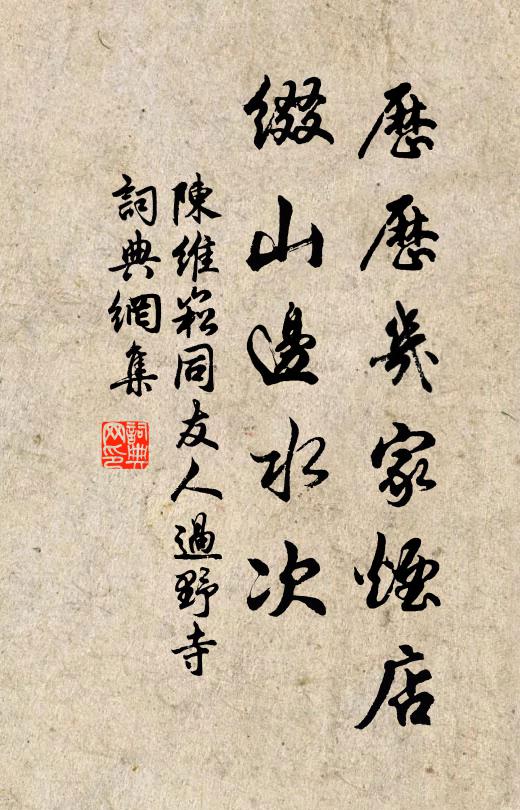 歷歷幾家煙店
綴山邊水次
陳維崧同友人過野寺
詞典網集
詞典网印